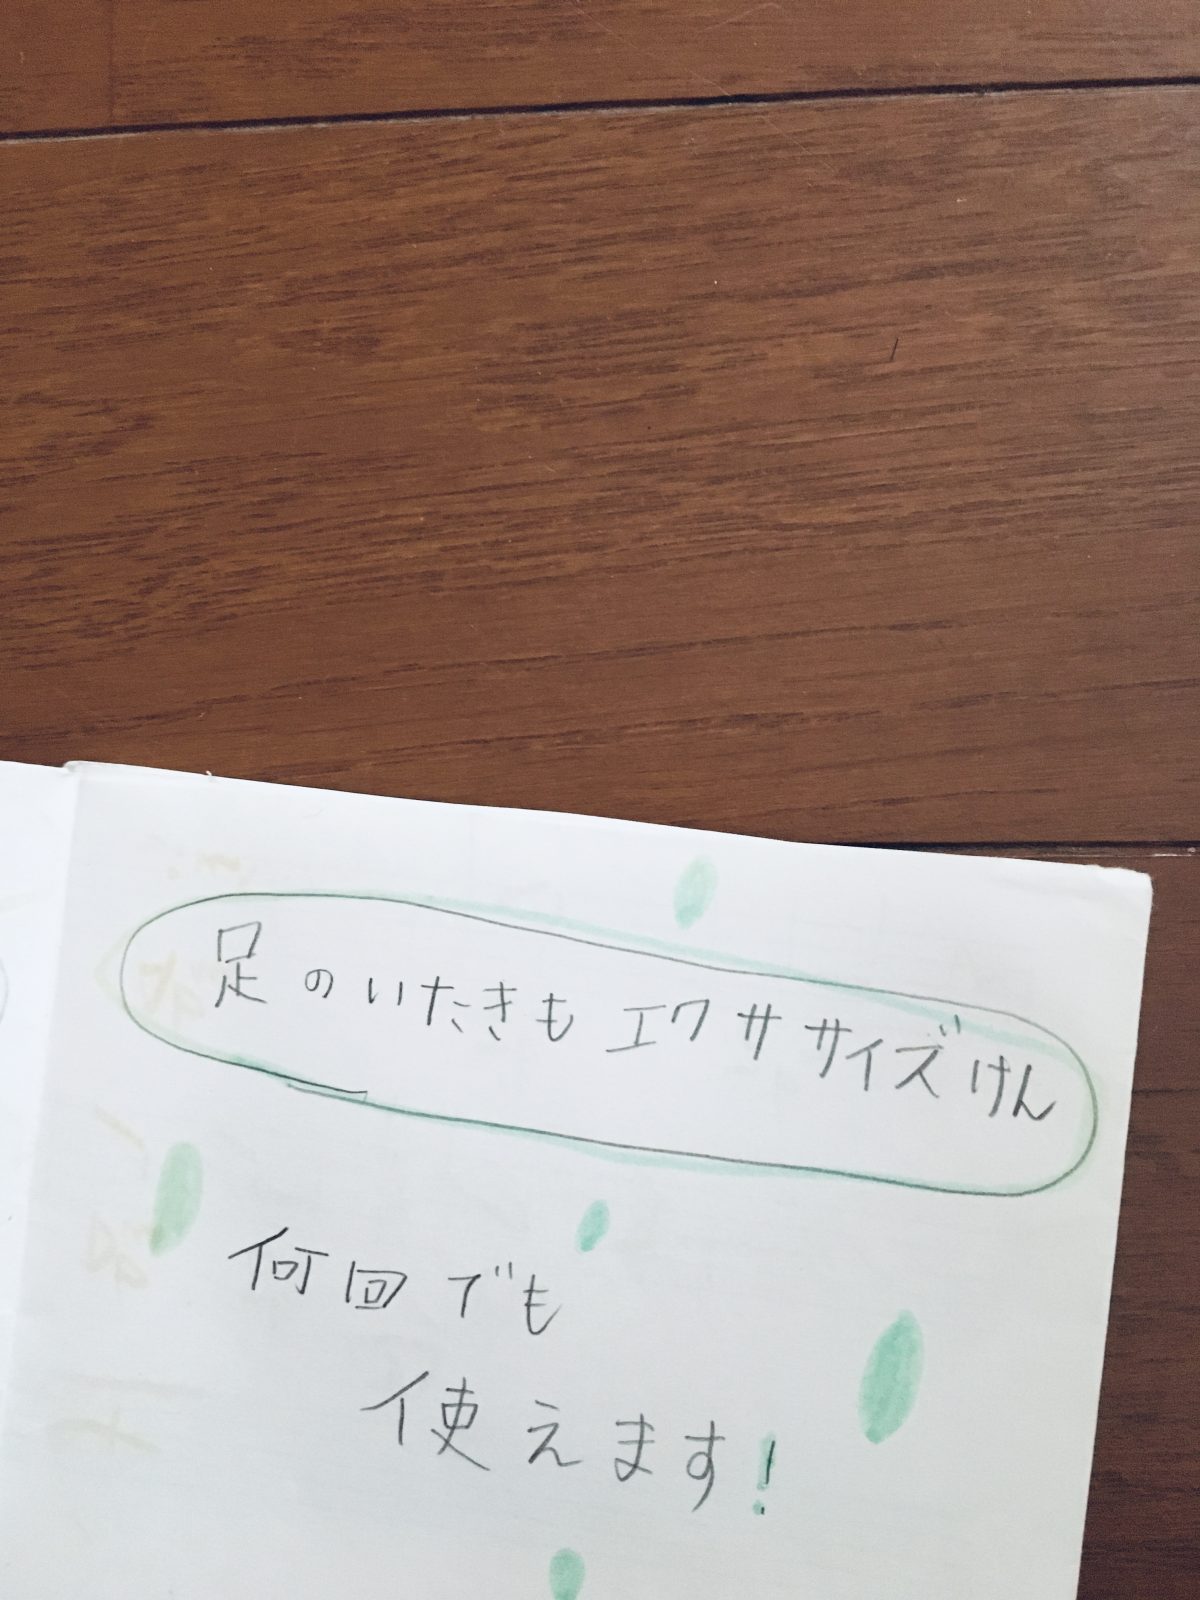 足のいたきもエクササイズけん
何回でも
使えます!